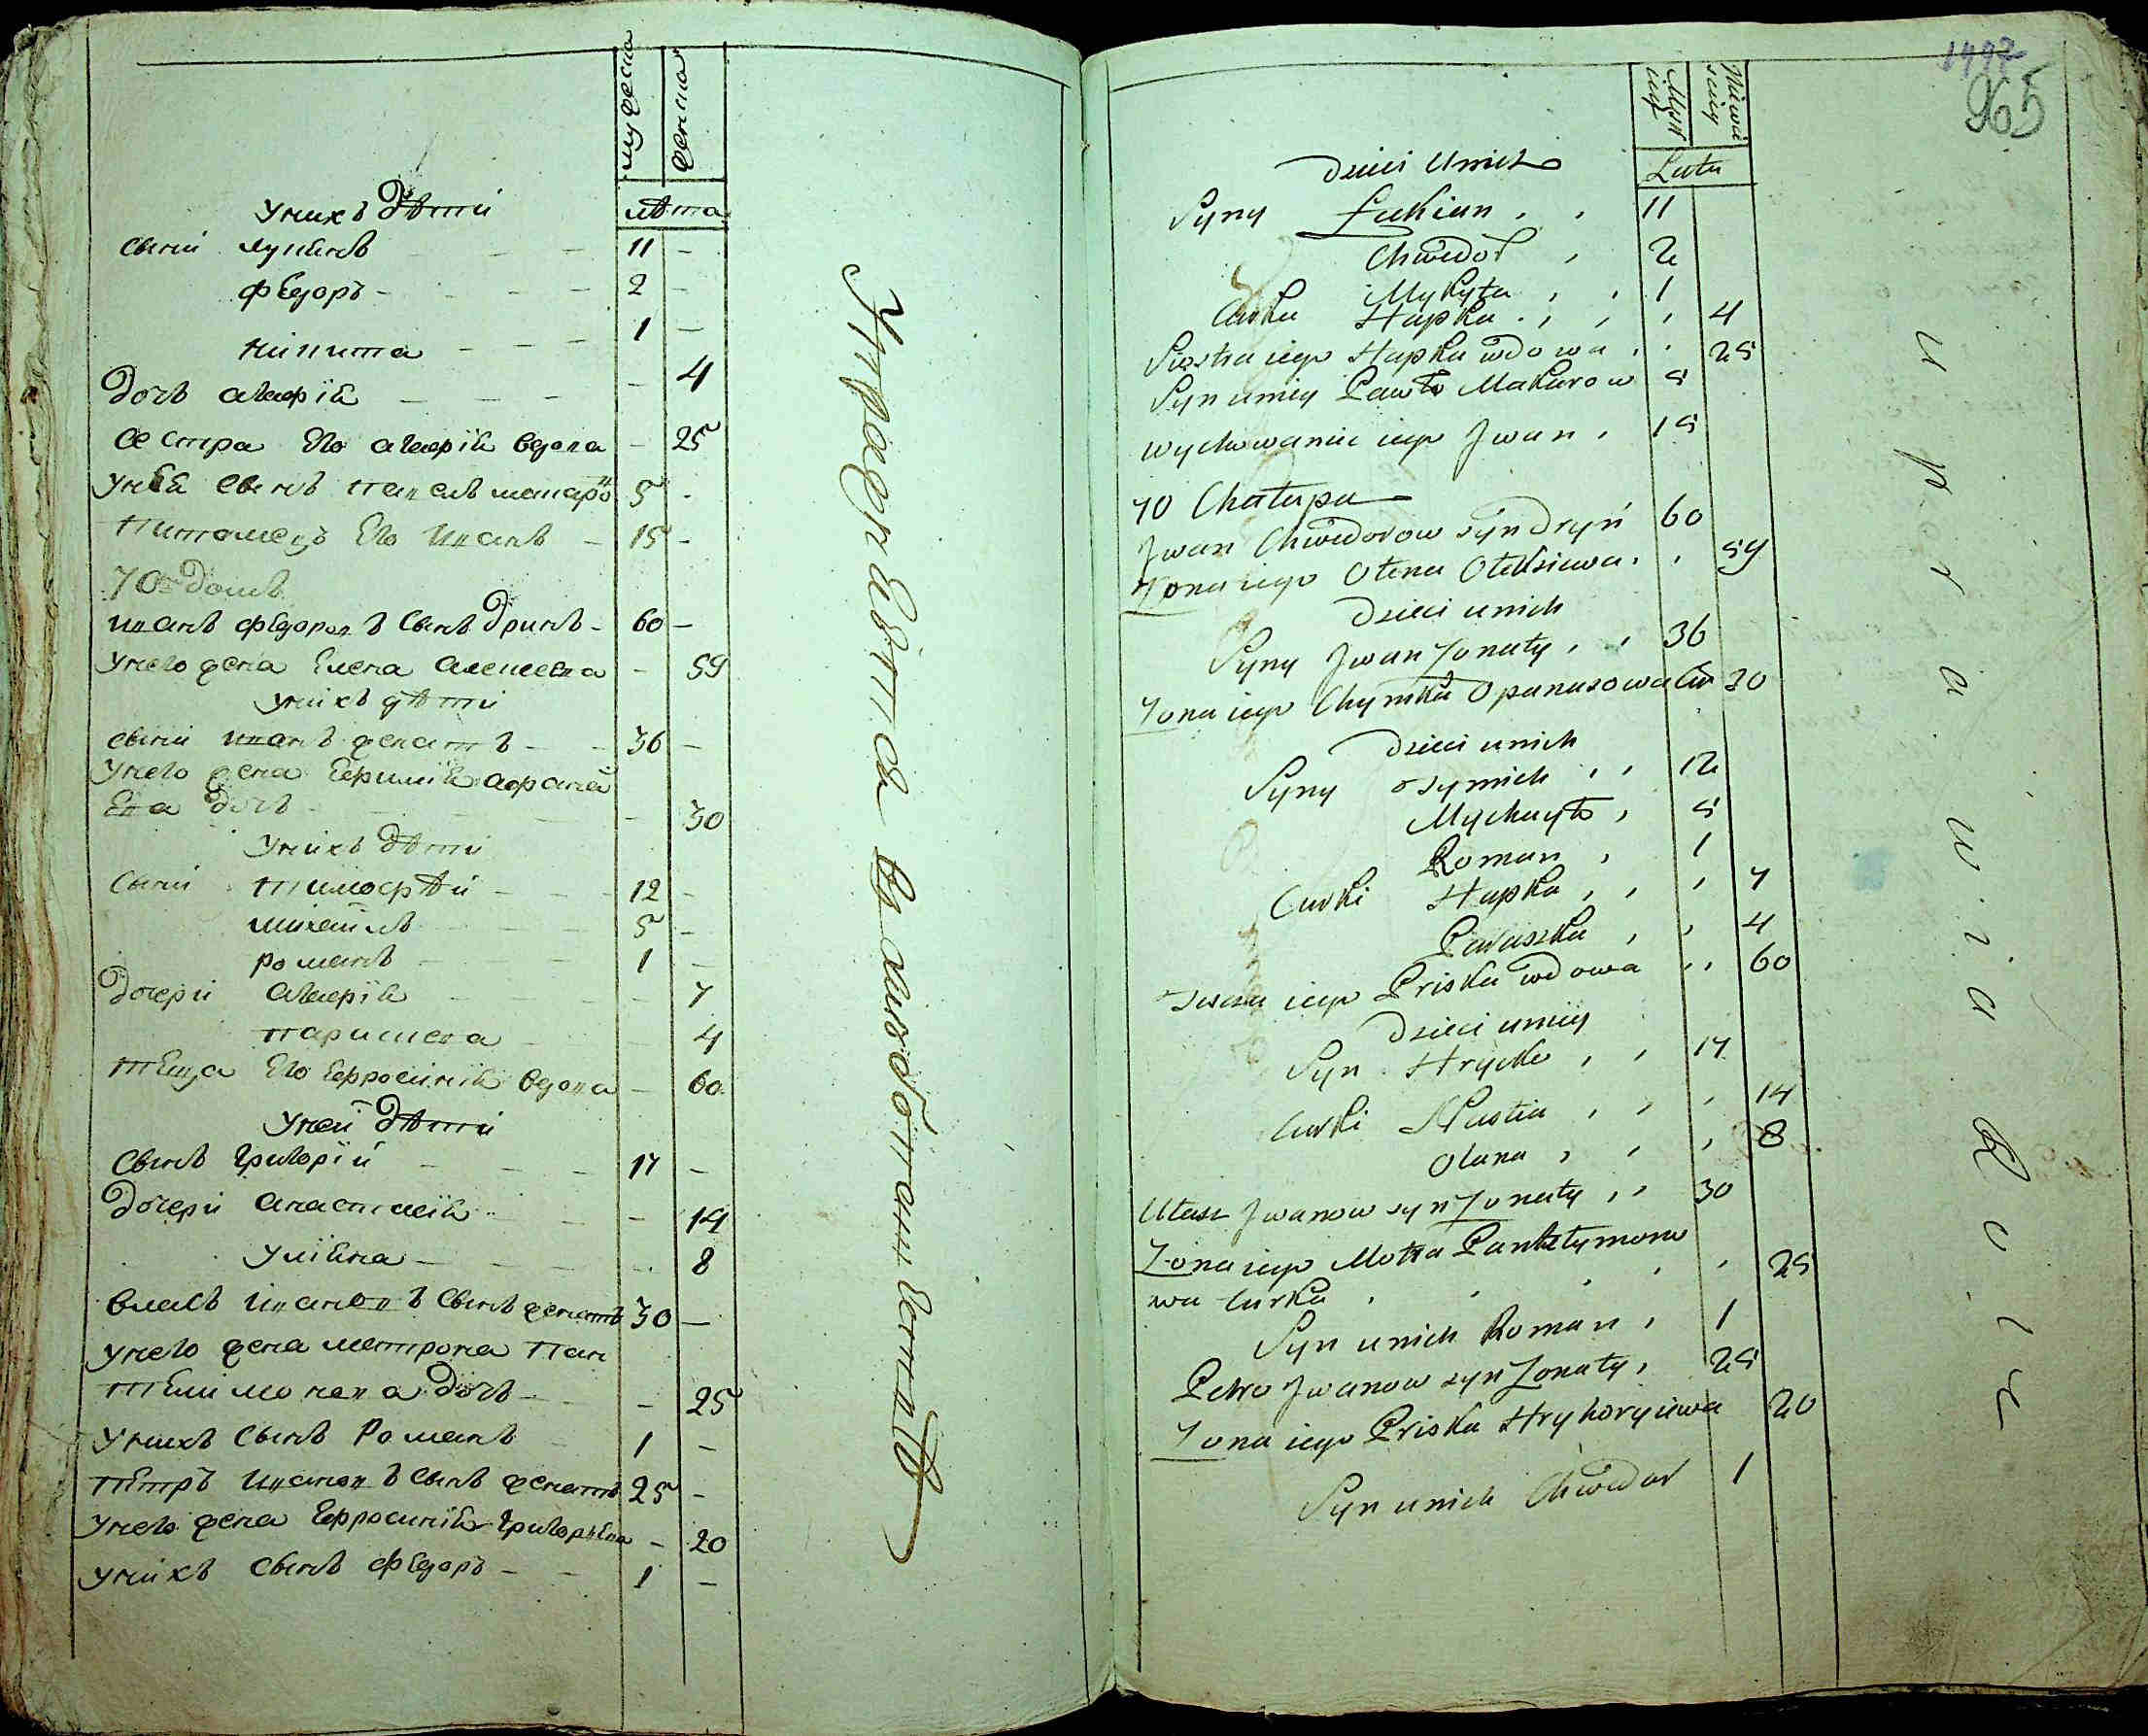 мужеска
женска
лѣта
Унихъ дѣти
сыни лукянъ 11 -
фЕдоръ 2 -
никита 1 -
дочъ агафія - 4
сестра Его агафія вдова - 25
унЕя сынъ павелъ макаро 5 -
питомецъ Его Иванъ - 15 -
70й домъ
иванъ фЕдоровъ сынъ дринъ - 60 -
унего жена Елена алексевна - 59
унихъ дѣти
сыни иванъ женатъ - 36 -
унего жена Ефимия афанас
Ева дочъ - 30
унихъ дѣти
сыни тимофѣй 12 -
михайлъ 5 -
романъ 1 -
дочери агафія - 7
парискева 4
тЕща Его Ефросинія вдова - 60
уней дѣти
сынъ григорій 17 -
дочери анастасія - 14
уліяна - 8
власъ ивановъ сынъ женатъ 30 -
унего жена матрона пан
тЕлимонова дочъ - 25
унихъ сынъ романъ 1 -
пЕтръ ивановъ сынъ женатъ 25 -
унего жена Ефросинія григорьЕва - 20
унихъ сынъ фЕдоръ - 1 -
1497
965
Lata
Dzieci Unich
Syny Łukian 11
Chwedor 2
Mykyta 1
Curka Hapka 4
Siostra iego Hapka wdowa 25
Syn uniey Pawło Makarow 5
wychowaniec iego Jwan 15
70 Chałupa
Jwan Chwedorow syn Dryń 60
Żona iego Ołena Ołeksiewa 59
Dzieci unich
Syny Jwan Żonaty 36
Żona iego Chymka Opanasowa Cur 30
Dzieci unich
Syny Tymich 12
Mychayło 5
Roman 1
Curki Hapka 7
Paraszka 4
Tescza iego Priska wdowa 60
Dzieci uniey
Syn Hrycko 17
Curki Nastia 14
Olana 8
Ułasz Jwanow syn Żonaty 30
Żona iego Motra Pantełymono
wa Curka 25
Syn unich Roman 1
Petro Jwanow syn Żonaty 25
Żona iego Priska Hryhoryiewa 20
Syn unich Chwedor 1